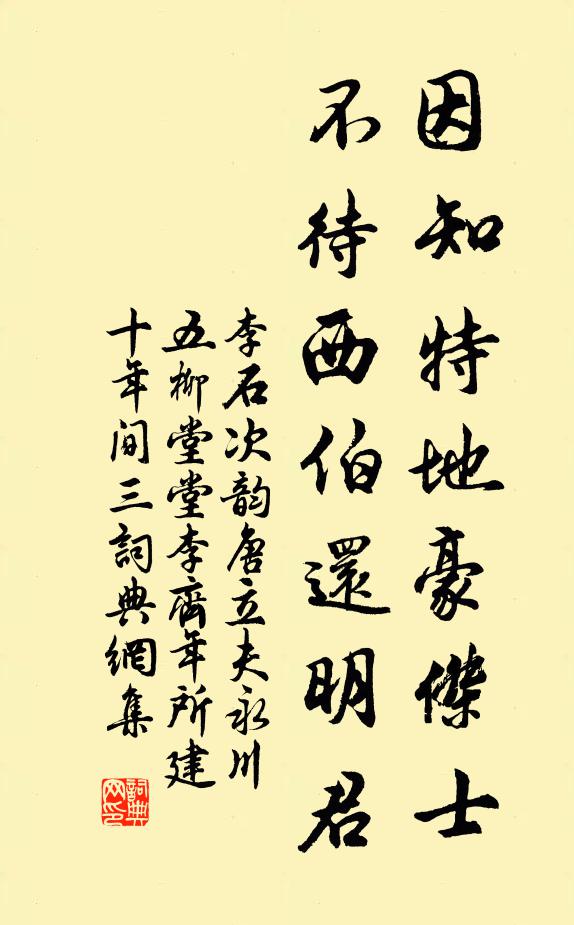 因知特地豪傑士
不待西伯還明君
李石次韵唐立夫永川
五柳堂堂李齊年所建
十年间三詞典網集
詞典网印